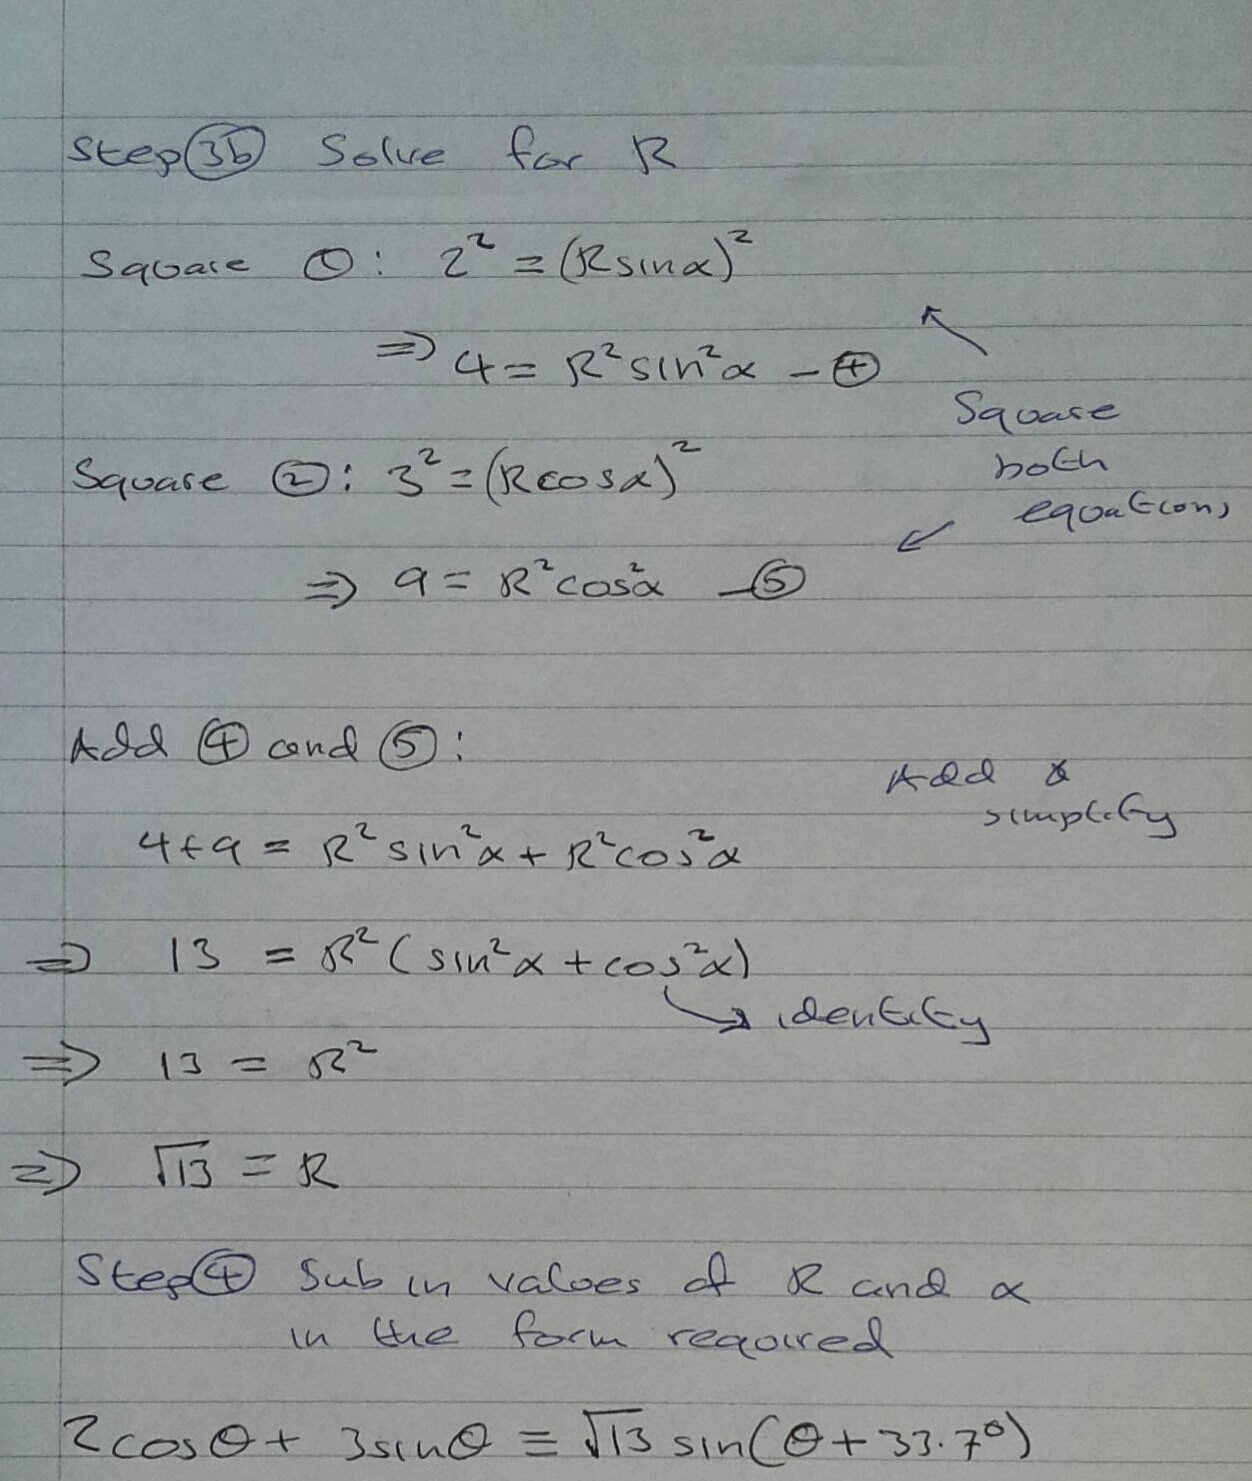 Step 3b Solve for R
Square ①: 2² = (R sinα)²
⇒ 4 = R² sin²α – ④
Square
both
equations
Square ②: 3² = (R cosα)²
⇒ 9 = R² cos²α – ⑤
Add ④ and ⑤:
Add &
simplify
4+9 = R² sin²α + R² cos²α
⇒ 13 = R² (sin²α + cos²α)
identity
⇒ 13 = R²
⇒ √13 = R
Step ④ Sub in values of R and α
in the form required
2cosθ + 3sinθ ≡ √13 sin(θ + 33.7°)